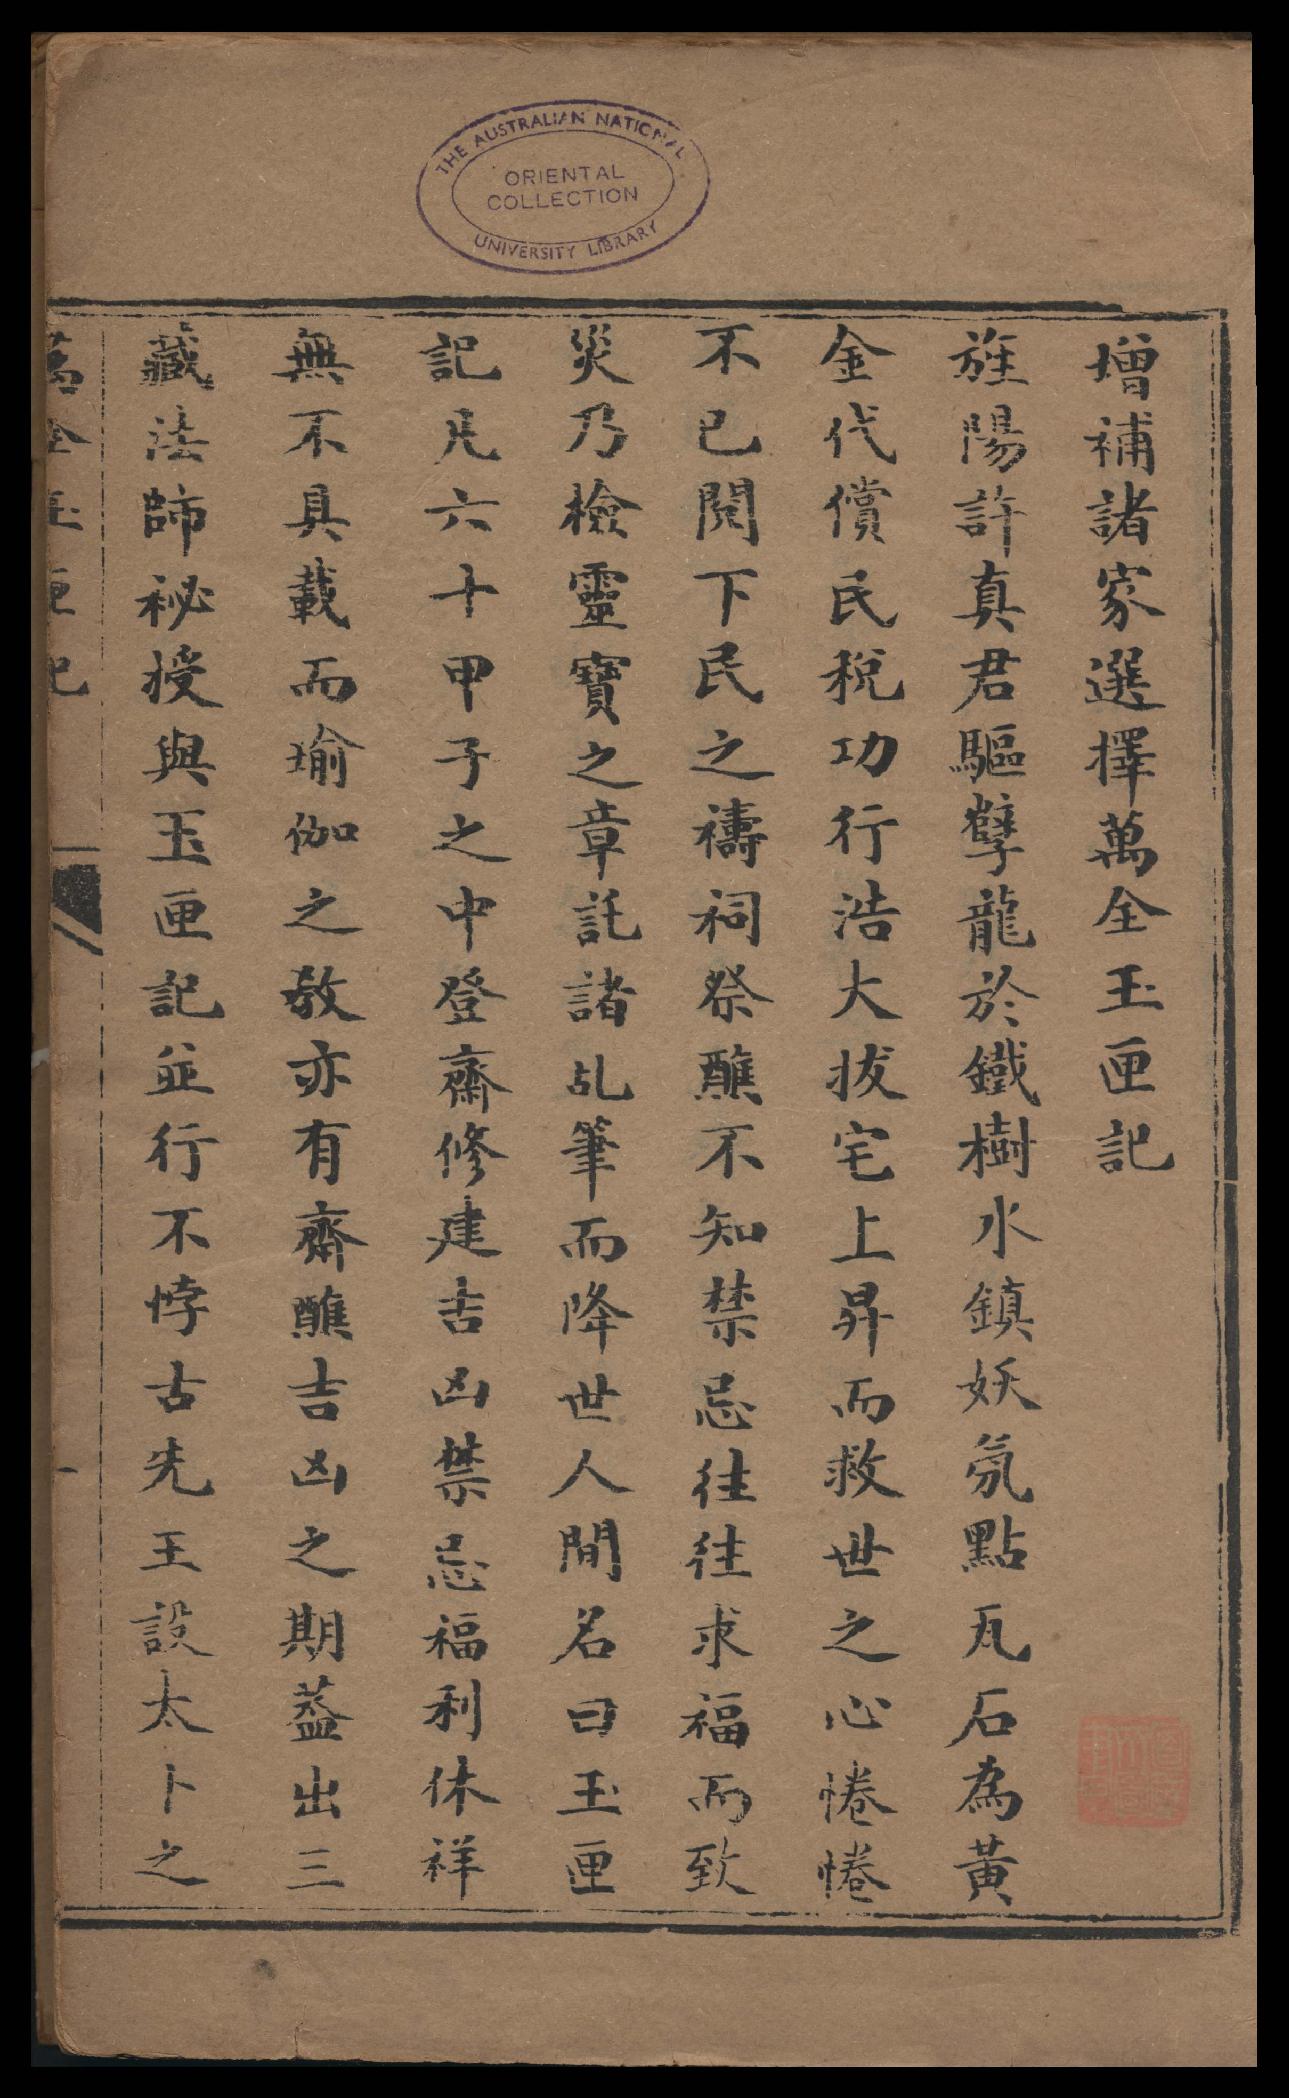 THE AUSTRALIAN NATIONAL
ORIENTAL
COLLECTION
UNIVERSITY LIBRARY
增補諸家選擇萬全玉匣記
旌陽許真君驅孽龍於鐵樹水鎮妖氛點瓦石為黃
金代償民稅功行浩大拔宅上昇而救世之心惓惓
不已閱下民之禱祠祭醮不知禁忌往往求福而致
災乃檢靈寶之章託諸乩筆而降世人間名曰玉匣
記凡六十甲子之中登齋修建吉凶禁忌福利休祥
無不具載而瑜伽之教亦有齋醮吉凶之期葢出三
藏法師祕授與玉匣記並行不悖古先王設太卜之
萬全玉匣記
一